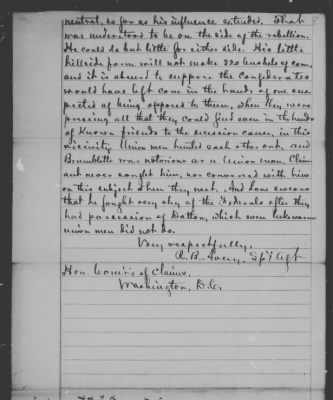 neutral, so far as his influence extended. That
was understood to be on the side of the rebellion.
He could do but little for either side. His little
hillside farm will not make 320 bushels of corn,
and it is absurd to suppose the Confederates
would have left corn in the hands of one sus-
pected of being opposed to them, when they were
pressing all that they could find even in the hands
of known friends to the secession cause, in this
vicinity. Union men hunted each other out, and
Bramblette was notorious as a Union man. Claim-
ant never sought him, nor conversed with him
on this subject when they met. And some
that he fought very shy of the Federals after they
had possession of Dalton, which even lukewarm
union men did not do.
Very respectfully,
R. B. Avery, Sp'l Agt
Hon Com'rs of Claims,
Washington, D.C.